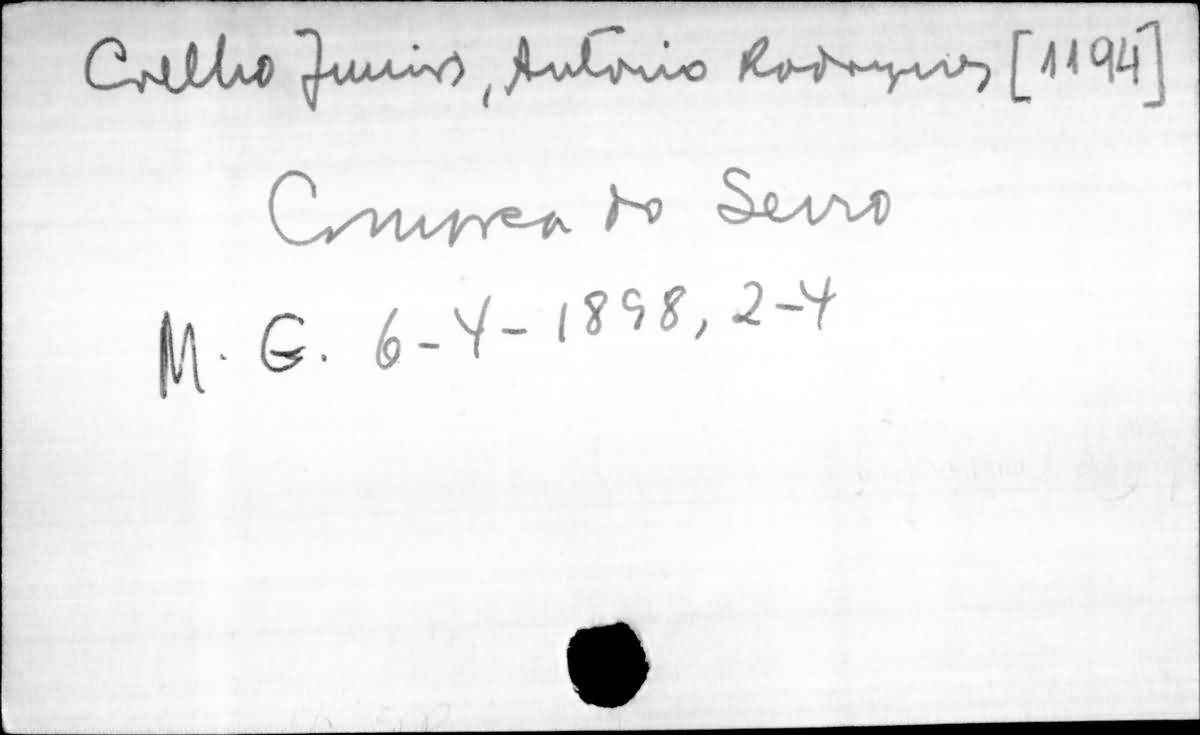 Coelho Junior, Antônio Rodrigues [1194]
Comarca do Serro
M. G. 6-4-1898, 2-4